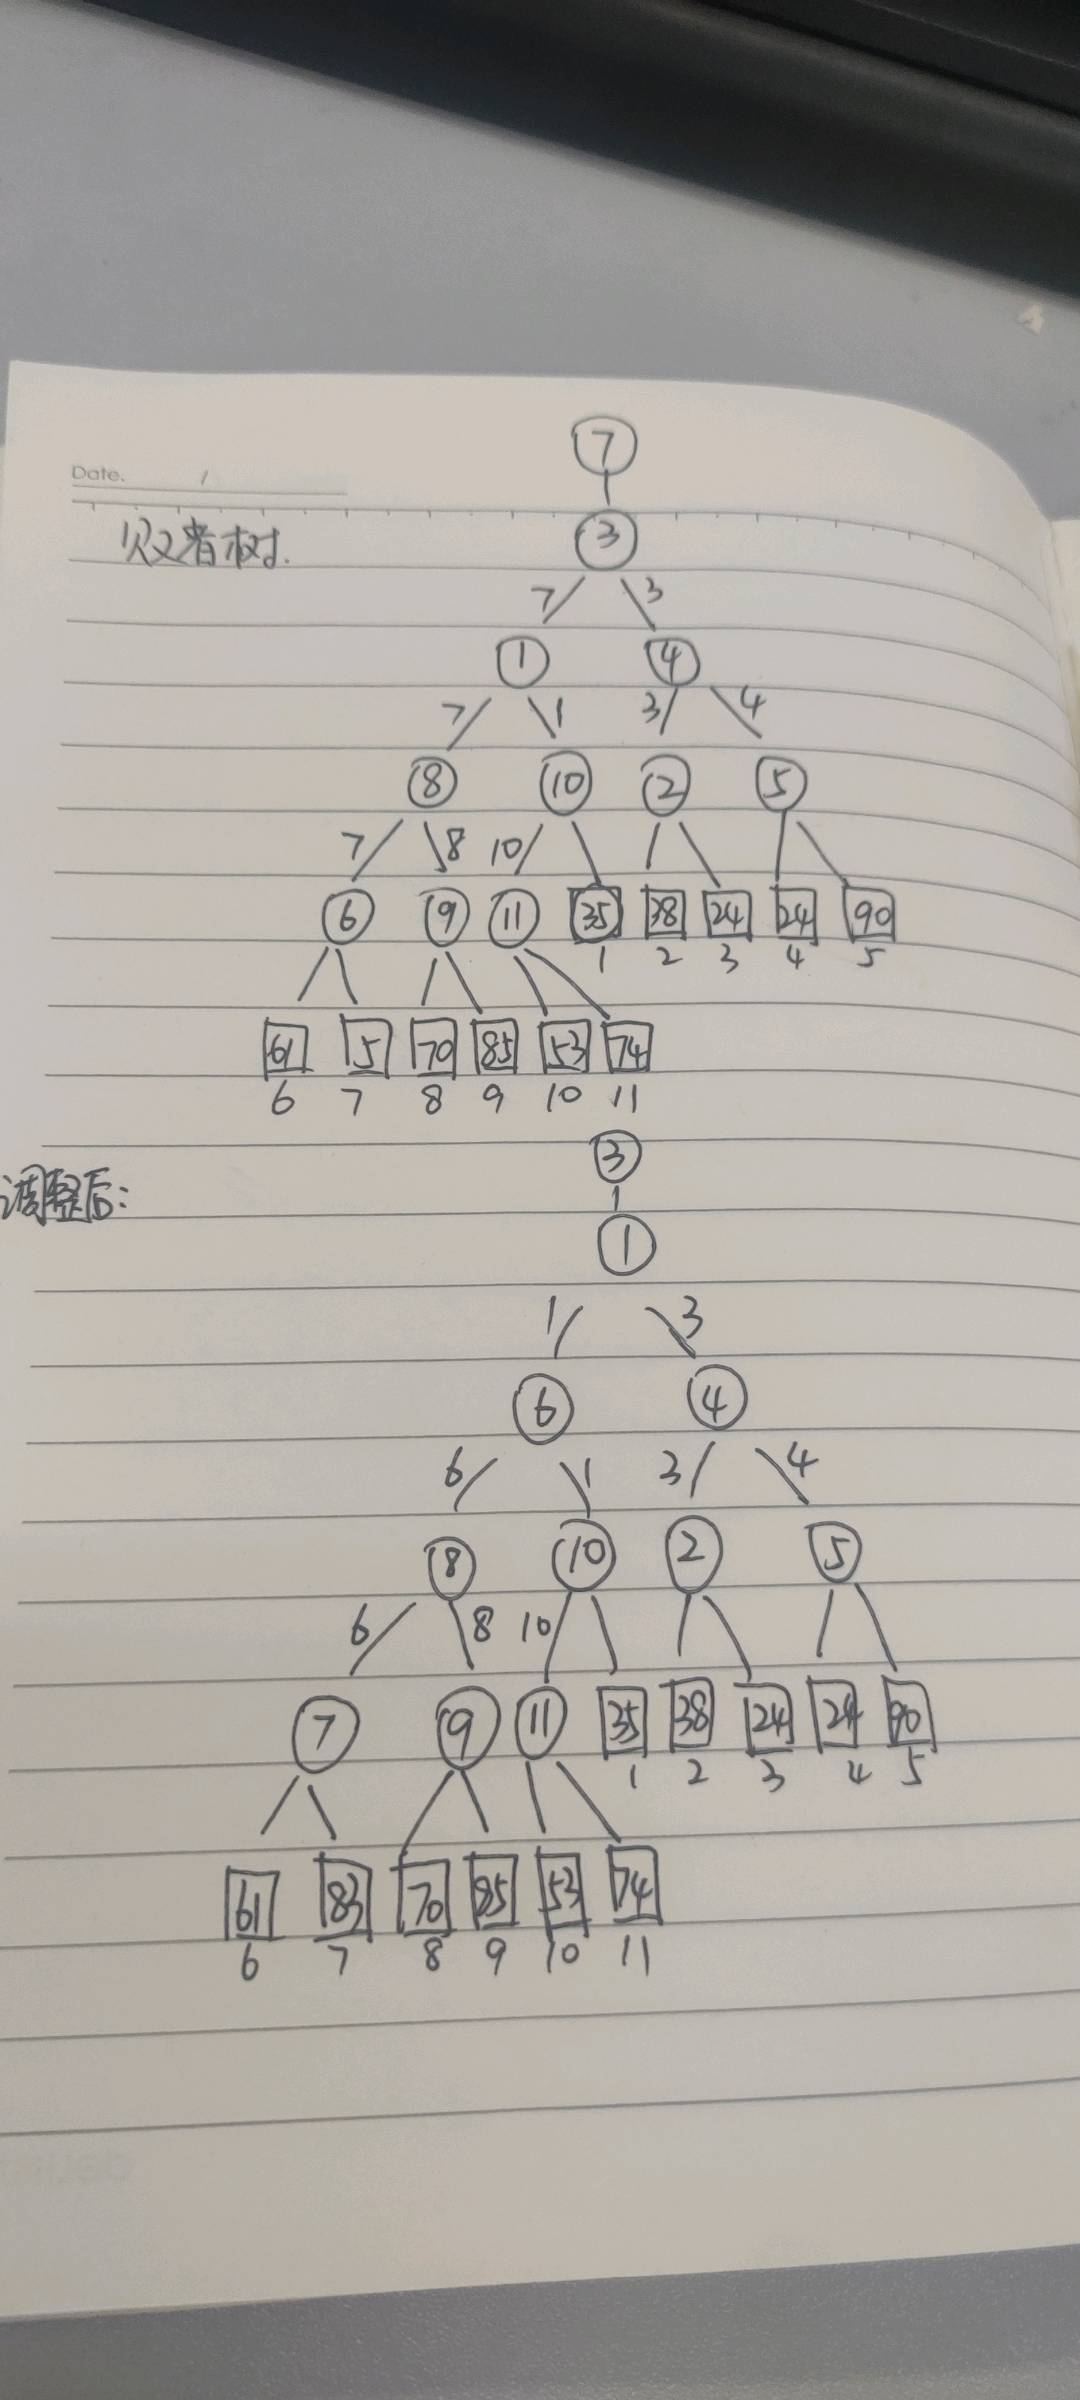 7
Date. /
败者树.
3
7 3
1 4
7 1 3 4
8 10 2 5
7 8 10
6 9 11 35 38 24 24 90
1 2 3 4 5
61 5 70 85 53 74
6 7 8 9 10 11
3
调整后:
1
1 3
6 4
6 1 3 4
8 10 2 5
6 8 10
7 9 11 35 38 24 24 90
1 2 3 4 5
61 83 70 85 53 74
6 7 8 9 10 11